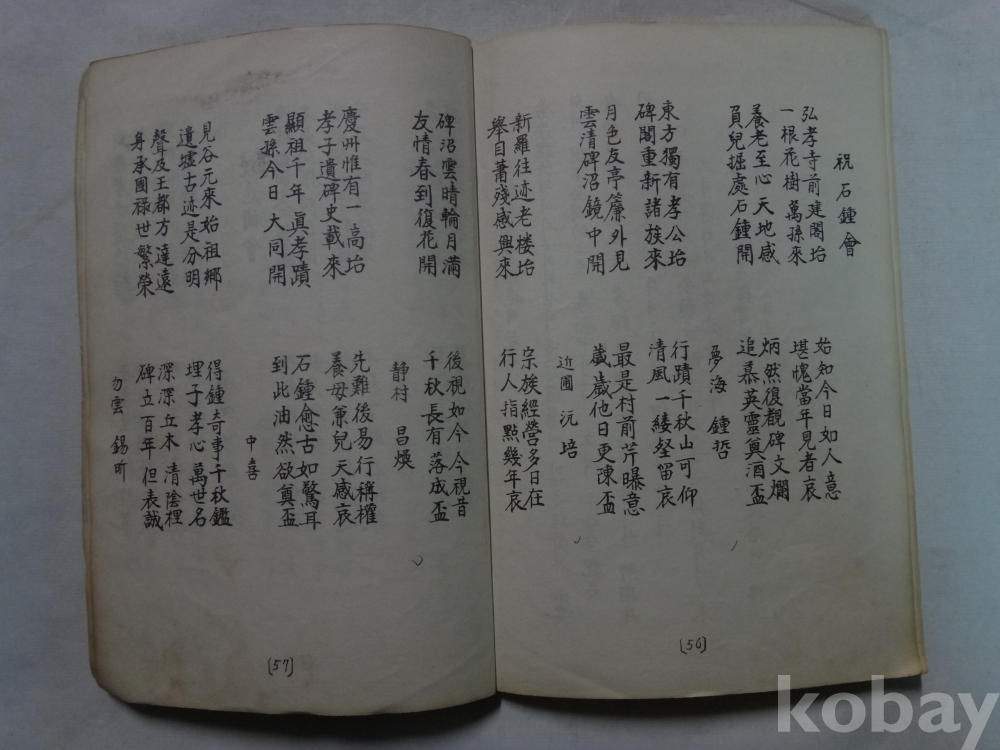 祝石鐘會
弘孝寺前建閣坮
一根花樹萬孫來
養老至心天地感
負兒掘處石鐘開
始知今日如人意
堪愧當年見者哀
炳然復觀碑文爛
追慕英靈奠酒盃
夢海 鍾哲
東方獨有孝公坮
碑閣重新諸族來
月色反亭簾外見
雲清碑沼鏡中開
行蹟千秋山可仰
清風一緩壑留哀
最是村前芹曝意
歲歲他日更陳盃
近圃 沅培
新羅往迹老楼坮
舉目蕭殘感興來
宗族經營多日在
行人指點幾年哀
(56)
碑沼雲晴輪月滿
友情春到復花開
後視如今今視昔
千秋長有落成盃
静村 昌煥
慶州惟有一高坮
孝子遺碑史載來
顯祖千年眞孝蹟
雲孫今日大同開
先難後易行稱權
養母兼兒天感哀
石鐘愈古如驚耳
到此油然欲奠盃
中喜
見谷元來始祖鄉
遺墟古迹是分明
聲及王都方達遠
身承國禄世繁榮
得鐘奇事千秋鑑
埋子孝心萬世名
深深丘木清陰裡
碑立百年但表誠
勿雲 錫昕
(57)
kobay